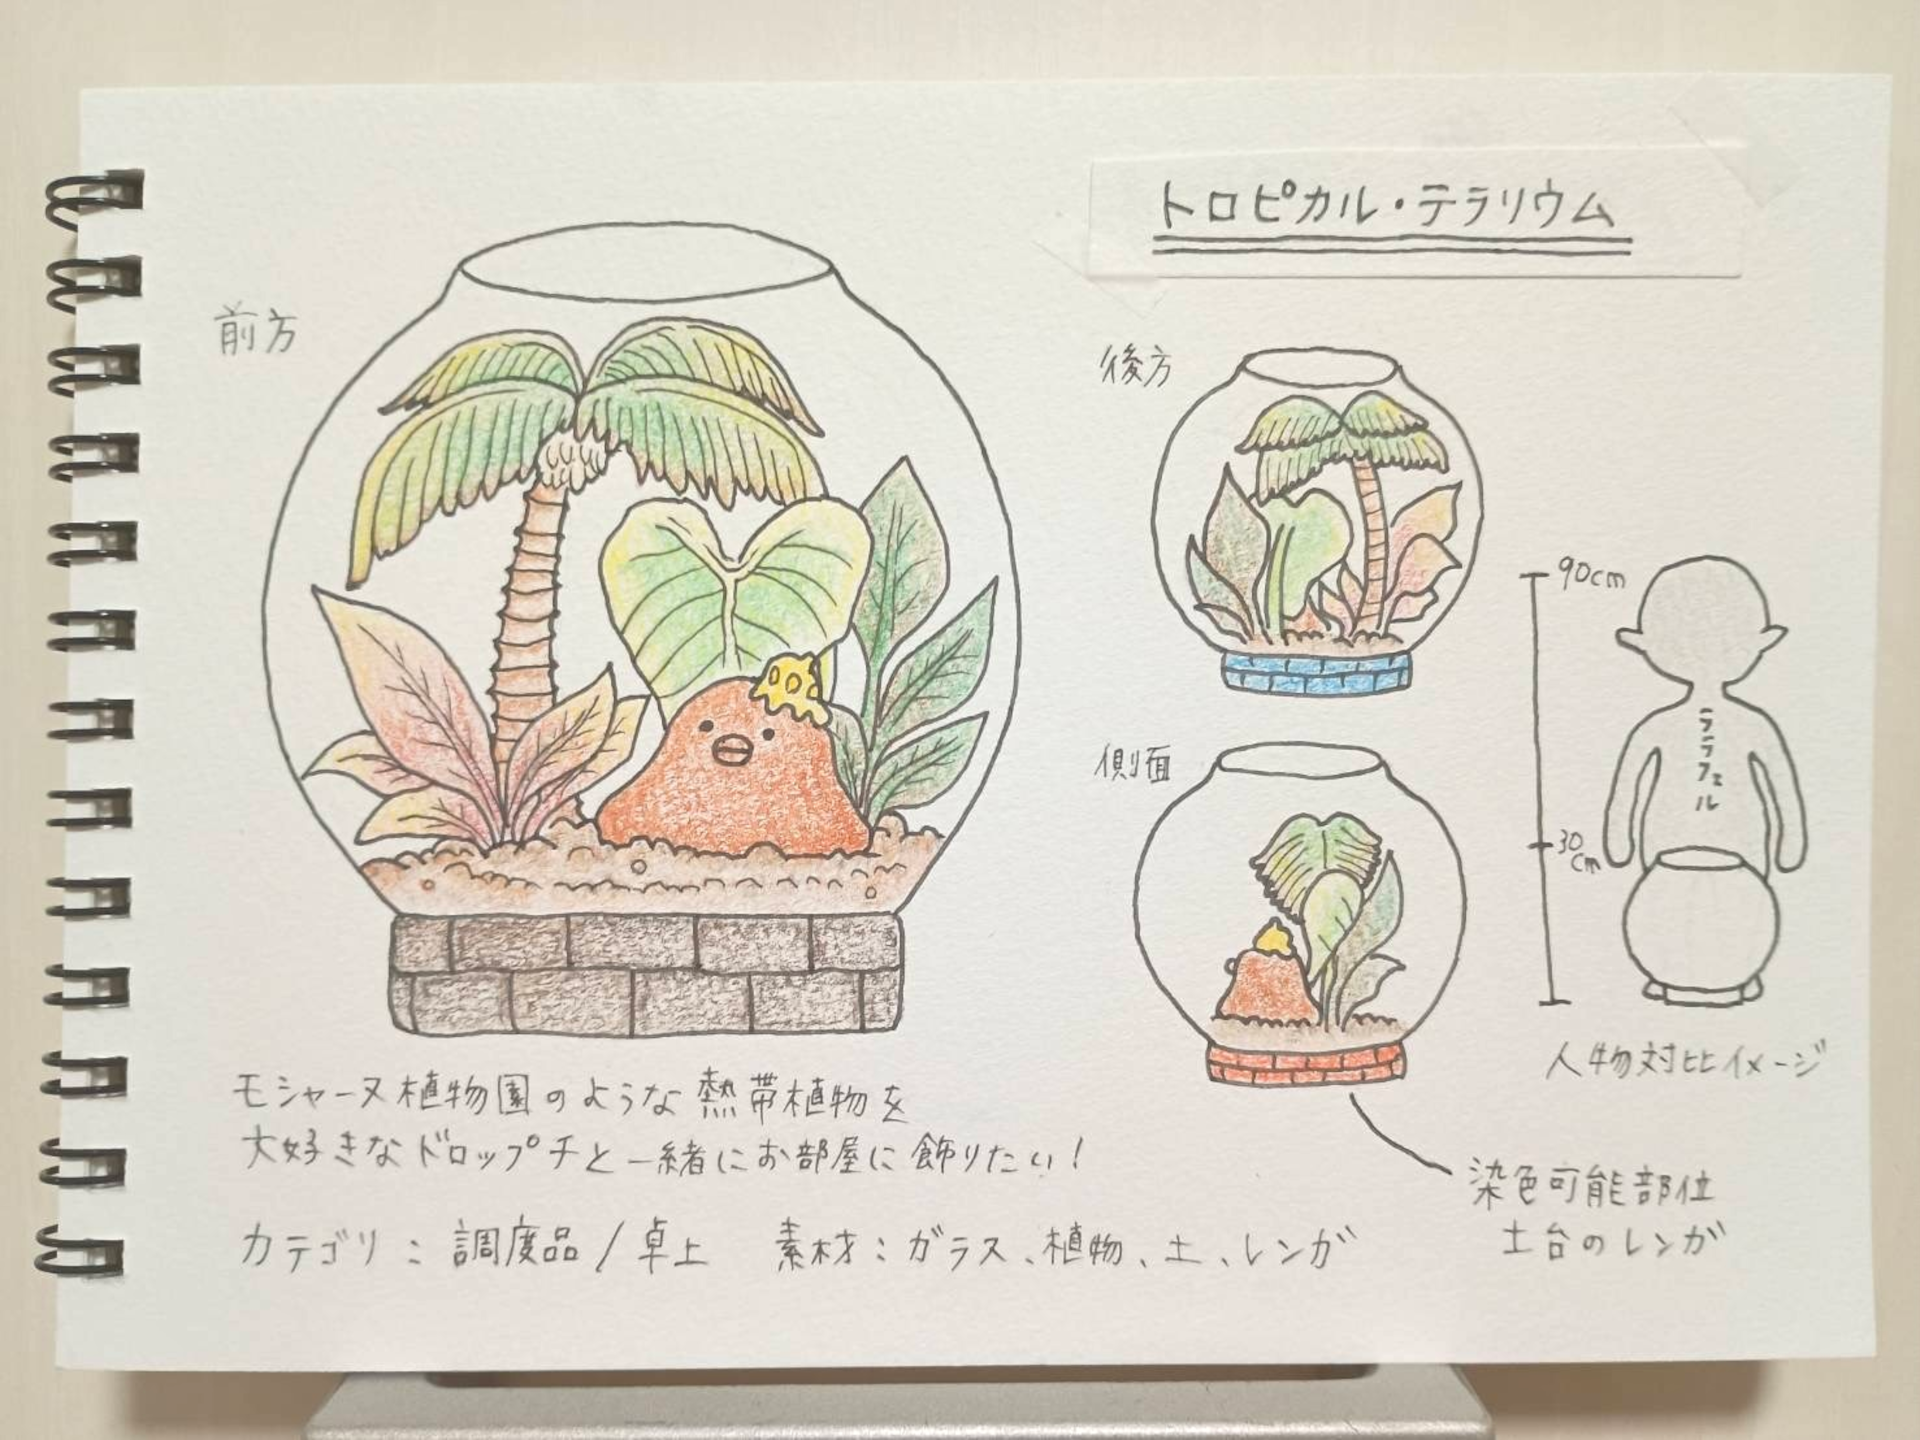 トロピカル・テラリウム
前方
後方
側面
90cm
30cm
ララフェル
人物対比イメージ
モシャーヌ植物園のような熱帯植物を
大好きなドロップチと一緒にお部屋に飾りたい！
カテゴリ：調度品/卓上　素材：ガラス、植物、土、レンガ
染色可能部位
土台のレンガ